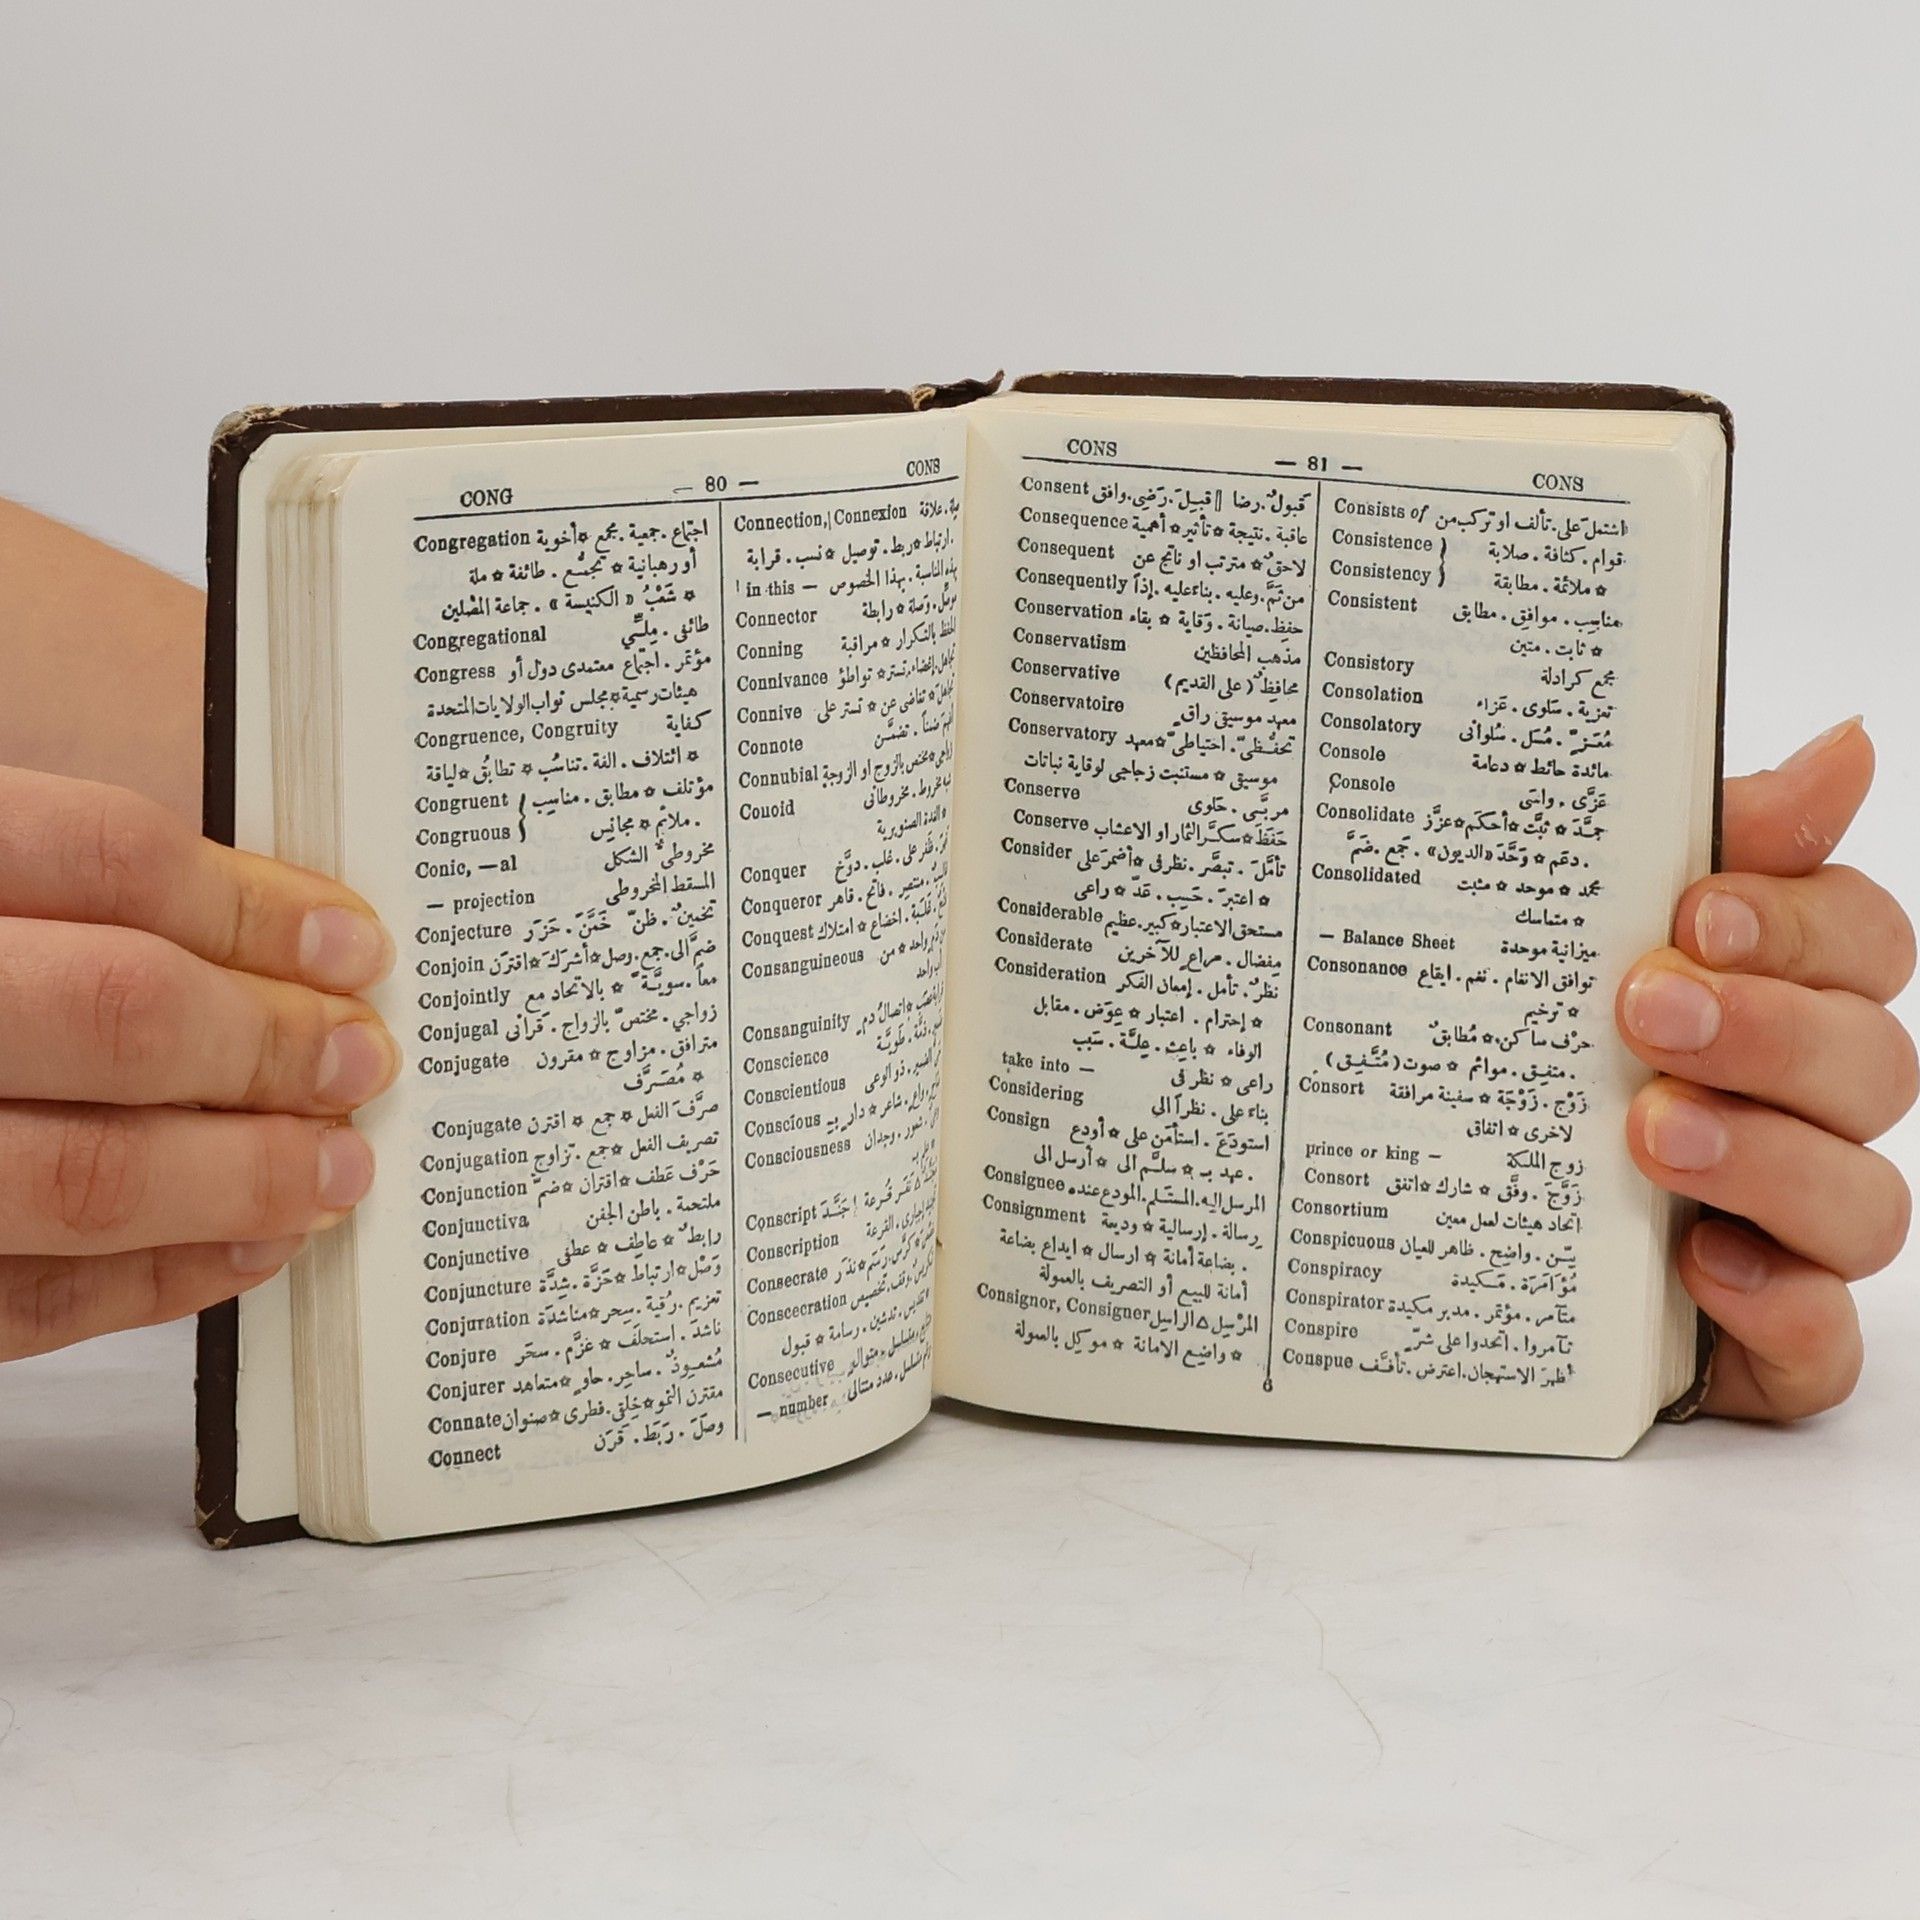 CONG — 80 — CONS
Congregation اجتماع . جمعية . مجمع ✩ أخوية
أو رهبانية ✩ تجمُّع . طائفة ✩ ملة
✩ شَعْبُ «الكنيسة» . جماعة المصلين
Congregational طائفى . مِلِّي
Congress مؤتمر . اجتماع معتمدى دول أو
هيئات رسمية ✩ مجلس نواب الولايات المتحدة
Congruence, Congruity كفاية
✩ ائتلاف . الفة . تناسُب ✩ تطابُق ✩ لياقة
Congruent } مؤتلف ✩ مطابق . مناسِب
Congruous } . ملائم ✩ مجانِس
Conic, —al مخروطي الشكل
— projection المسقط المخروطي
Conjecture تخمين . ظنّ خَمَّنَ . حَزَر
Conjoin ضمَّ الى . جمع . وصل ✩ أشرَكَ ✩ اقترَن
Conjointly معاً . سويَّة ✩ بالاتحاد مع
Conjugal زواجي . مختصّ بالزواج . قرانى
Conjugate مترافق . مزاوج ✩ مقرون
✩ مُصَرَّف
Conjugate صرَّف الفعل ✩ جمع ✩ اقترن
Conjugation تصريف الفعل ✩ جمع . تزاوج
Conjunction حَرْف عَطف ✩ اقتران ✩ ضمّ
Conjunctiva ملتحمة . باطن الجفن
Conjunctive رابط ✩ عاطِف ✩ عطفى
Conjuncture وَصْل ✩ ارتباط ✩ حَزَّة . شِدَّة
Conjuration تعزيم . رُقية . سِحر ✩ مناشَدَة
Conjure ناشدَ . استحلَف ✩ عزَّم . سحَر
Conjurer مُشعوِذ . ساحِر . حاوٍ ✩ متعاهد
Connate مقترن النمو ✩ خِلقى . فطرى ✩ صنوان
Connect وصَلَ . رَبَط . قَرَن
Connection, Connexion صلة . علاقة
. ارتباط ✩ ربط . توصيل ✩ نسب . قرابة
in this — بهذه المناسبة . بهذا الخصوص
Connector موصِّل . وَصلة ✩ رابطة
Conning الحفظ بالتكرار ✩ مراقبة
Connivance تجاهل . إغضاء . تستر ✩ تواطؤ
Connive تجاهلَ ✩ تغاضى عن ✩ تستر على
Connote ضمناً . تضمَّن
Connubial زواجي ✩ مختص بالزوج او الزوجة
Conoid مخروط . مخروطانى
✩ الغدة الصنوبرية
Conquer . ظَفر على . غلب . دوَّخ
Conqueror . منتصِر . فاتح . قاهر
Conquest . غَلَبَة . اخضاع ✩ امتلاك
Consanguineous واحد ✩ من
أب واحد
Consanguinity ✩ اتصالُ دم
Conscience . ذمَّة . طَوِيَّة
Conscientious الضمير . ذو الوعى
Conscious . واعٍ . شاعر ✩ دارٍ بـ
Consciousness . شعور . وجدان
Conscript نَفَر قُرعة ‖ جَنَّد
Conscription القرعة
Consecrate ✩ كرَّس . رَسَم ✩ نذَر
Conscecration . وقف . تخصيص
✩ تقديس . تدشين . رسامة ✩ قبول
Consecutive متسلسل . متوالٍ
— number متسلسل . عدد متتالى
CONS — 81 — CONS
Consent قَبول . رضا ‖ قبِلَ . رَضِى . وافق
Consequence عاقبة . نتيجة ✩ تأثير ✩ أهمية
Consequent لاحق ✩ مترتب او ناتج عن
Consequently من ثَمَّ . وعليه . بناءً عليه . إذاً
Conservation حفظ . صيانة . وَقاية ✩ بقاء
Conservatism مذهب المحافظين
Conservative محافظ (على القديم)
Conservatoire معهد موسيقى راقٍ
Conservatory تحفُّظيّ . احتياطي ✩ معهد
موسيقى ✩ مستنبت زجاجى لوقاية نباتات
Conserve مربَّى . حَلوى
Conserve حَفَظَ ✩ سكَّر الثمار او الاعشاب
Consider تأمَّل . تبصَّر . نظر فى ✩ أضمرَ على
✩ اعتبرَ . حَسِب . عَدّ ✩ راعى
Considerable مستحق الاعتبار ✩ كبير . عظيم
Considerate مِفضال . مراعٍ للآخرين
Consideration نظرٌ . تأمل . إمعان الفكر
✩ إحترام . اعتبار ✩ عِوَض . مقابل
الوفاء ✩ باعِث . عِلَّة . سَبَب
take into — راعى ✩ نظر فى
Considering بناءً على . نظراً الى
Consign استودَعَ . استأمَن على ✩ أودع
. عهد بـ ✩ سلَّم الى ✩ أرسل الى
Consignee المرسل اليه . المستلم . المودع عنده
Consignment رسالة . إرسالية ✩ وديعة
. بضاعة أمانة ✩ ارسال ✩ ايداع بضاعة
أمانة للبيع أو التصريف بالعمولة
Consignor, Consigner المرْسِل △ الراسِل
✩ واضِع الامانة ✩ موكل بالعمولة
6
Consists of اشتملَ على . تألف او تركب من
Consistence } قوام . كثافة . صلابة
Consistency } ✩ ملائمة . مطابقة
Consistent مناسِب . موافِق . مطابق
✩ ثابت . متين
Consistory مجمع كرادلة
Consolation تعزية . سَلوى . عَزاء
Consolatory مُعَزٍّ . مُسَل . سُلوانى
Console مائدة حائط ✩ دعامة
Console عَزَّى . واسَى
Consolidate جمَّدَ ✩ ثبَّت ✩ أحكَم ✩ عزَّز
. دعَم ✩ وَحَّدَ «الديون» . جَمع . ضَمَّ
Consolidated مجمد ✩ موحد ✩ مثبت
✩ متماسك
— Balance Sheet ميزانية موحدة
Consonance توافق الانغام . نغم . ايقاع
✩ ترخيم
Consonant حرْف ساكن ✩ مُطابقٌ
. متفِق . موائم ✩ صوت (مُتَّفِق)
Consort زَوْج . زَوْجَة ✩ سفينة مرافقة
لاخرى ✩ اتفاق
prince or king — زوج الملكة
Consort زَوَّجَ . وفَّق ✩ شارك ✩ اتفق
Consortium اتحاد هيئات لعمل معين
Conspicuous بيّن . واضِح . ظاهر للعيان
Conspiracy مُؤامَرَة . مَكيدة
Conspirator متآمر . مؤتمر . مدبر مكيدة
Conspire تآمروا . اتحدوا على شرّ
Conspue أظهرَ الاستهجان . اعترض . تأفَّف